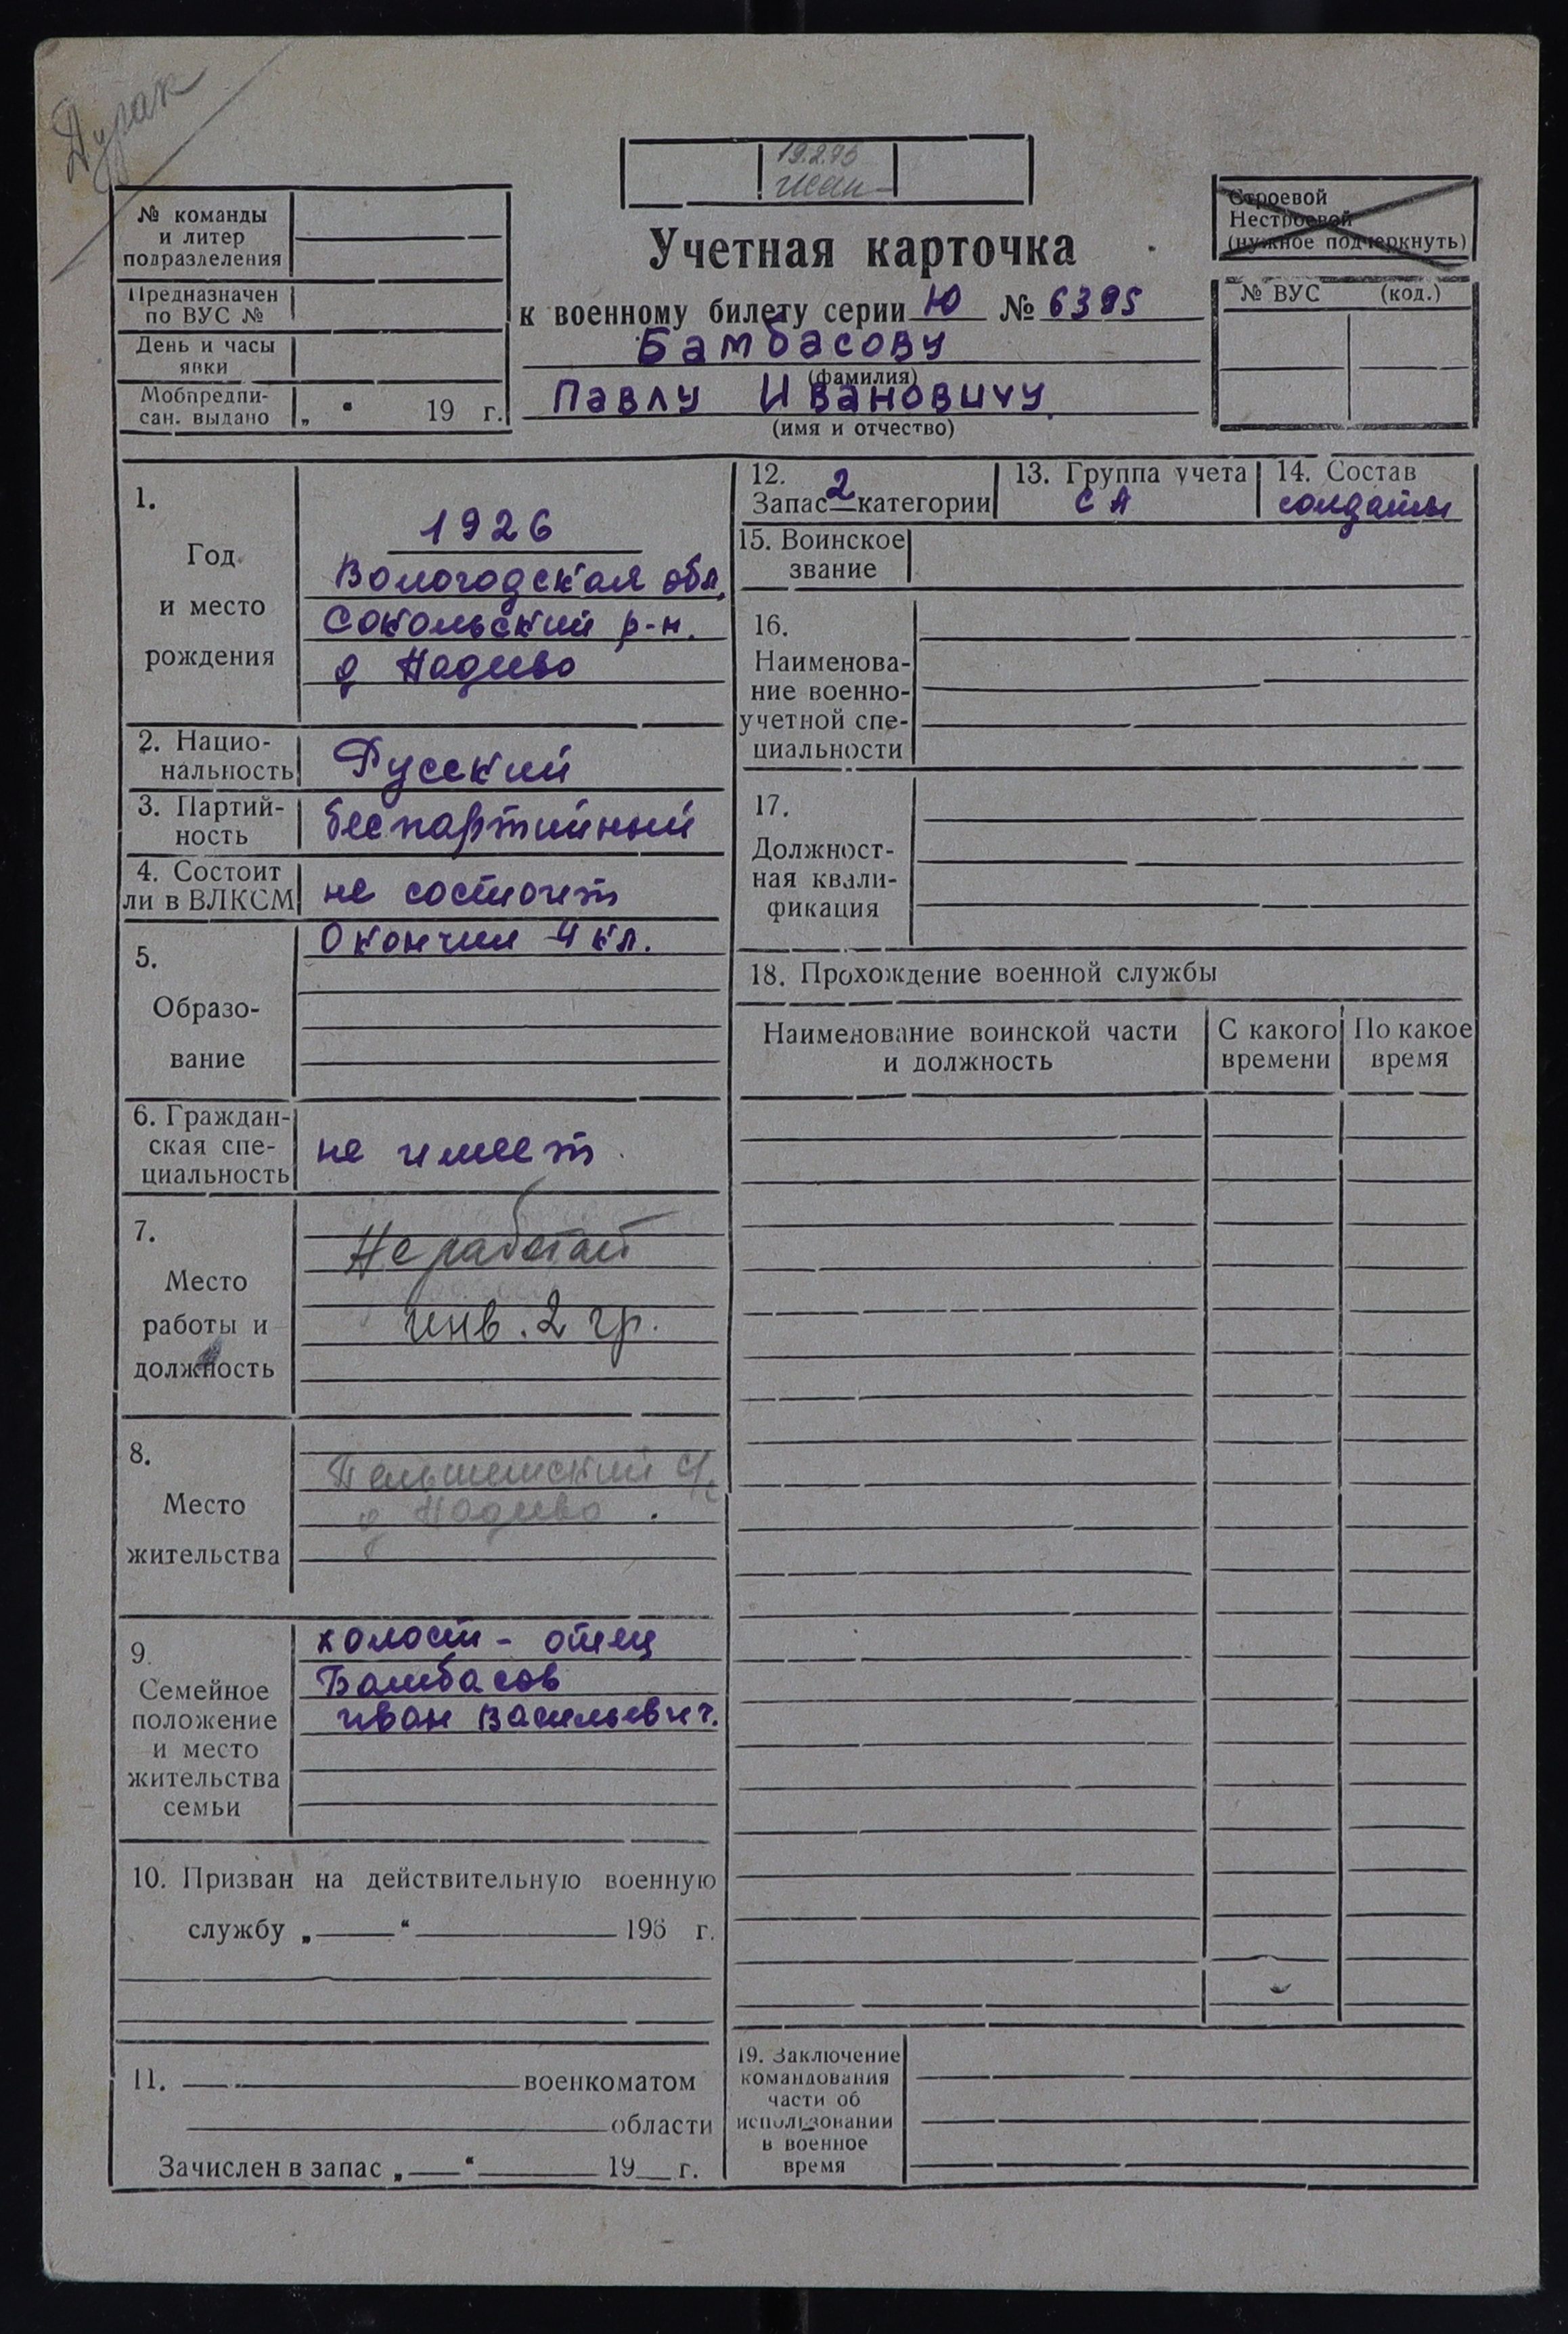 Дурак
19.2.73
Строевой
Нестроевой
(нужное подчеркнуть)
№ команды
и литер
подразделения
Предназначен
по ВУС №
День и часы
явки
Мобпредпи-
сан. выдано „ “ 19 г.
Учетная карточка
к военному билету серии Ю № 6395
Бамбасову
(фамилия)
Павлу Ивановичу
(имя и отчество)
№ ВУС (код.)
1.
Год
и место
рождения
1926
Вологодская обл.
Сокольский р-н.
д Надеево
2. Нацио-
нальность
Русский
3. Партий-
ность
беспартийный
4. Состоит
ли в ВЛКСМ
не состоит
5.
Образо-
вание
Окончил 4 кл.
6. Граждан-
ская спе-
циальность
не имеет
7.
Место
работы и
должность
Не работает
инв. 2 гр.
8.
Место
жительства
д Надеево
9.
Семейное
положение
и место
жительства
семьи
холост - отец
Бамбасов
иван Васильевич.
10. Призван на действительную военную
службу „ “ 196 г.
11. военкоматом
области
Зачислен в запас „ “ 19 г.
12.
Запас 2 категории
13. Группа учета
СА
14. Состав
солдаты
15. Воинское
звание
16.
Наименова-
ние военно-
учетной спе-
циальности
17.
Должност-
ная квали-
фикация
18. Прохождение военной службы
Наименование воинской части
и должность
С какого
времени
По какое
время
19. Заключение
командования
части об
использовании
в военное
время